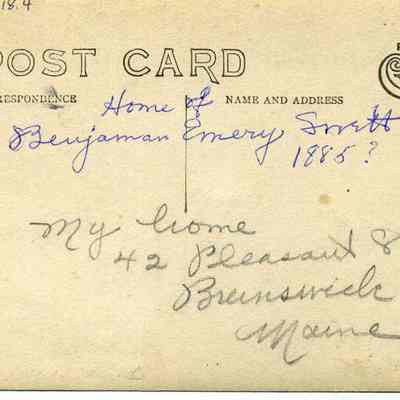 18.4
POST CARD
RESPONDENCE
NAME AND ADDRESS
Home of
Benjaman Emery Swett
1885?
My home
42 Pleasant S
Brunswick
Maine